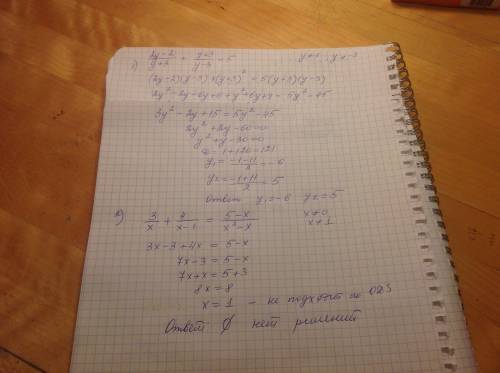 1) (2y-2)/(y+3) + (y+3)/(y-3) = 5 y≠3; y≠-3
(2y-2)(y-3)+(y+3)² = 5(y+3)(y-3)
2y²-2y-6y+6+y²+6y+9 = 5y²-45
3y²-2y+15 = 5y²-45
2y²+2y-60=0
y²+y-30=0
D=1+120=121
y₁ = (-1-11)/2 = -6
y₂ = (-1+11)/2 = 5
Ответ y₁=-6 y₂=5
2) 3/x + 4/(x-1) = (5-x)/(x²-x) x≠0 x≠1
3x-3+4x = 5-x
7x-3 = 5-x
7x+x = 5+3
8x=8
x=1 - не подходит по ОДЗ
Ответ ∅ нет решений